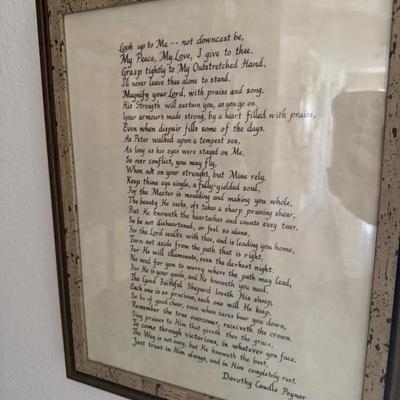 Look up to Me -- not downcast be,
My Peace, My Love, I give to thee.
Grasp tightly to My Outstretched Hand,
I'll never leave thee alone to stand.
Magnify your Lord, with praise and song,
His Strength will sustain you, as you go on.
Your armours made strong, by a heart filled with praise,
Even when despair fills some of the days.
As Peter walked upon a tempest sea,
As long as his eyes were stayed on Me,
So over conflict, you may fly,
When not on your strenght, but Mine rely.
Keep thine eye single, a fully-yielded soul,
For the Master is moulding and making you whole,
The beauty He seeks, oft takes a sharp pruning shear,
But He knoweth the heartaches and counts every tear.
So be not disheartened, or feel so alone,
For the Lord walks with thee, and is leading you home,
Turn not aside from the path that is right,
For He will illuminate, even the darkest night.
No need for you to worry where the path may lead,
For He is your guide, and He knoweth you need.
The Good Faithful Shepard loveth His sheep,
Each one is so precious, each one will He keep.
So be of good cheer, even when cares bear you down,
Remember the true overcomer, receiveth the crown.
Sing praises to Him that giveth thee the grace,
To come through victorious, in whatever you face.
The Way is not easy, but He knoweth the best,
Just trust in Him always, and in Him completely rest.
Dorothy Caudle Poynor